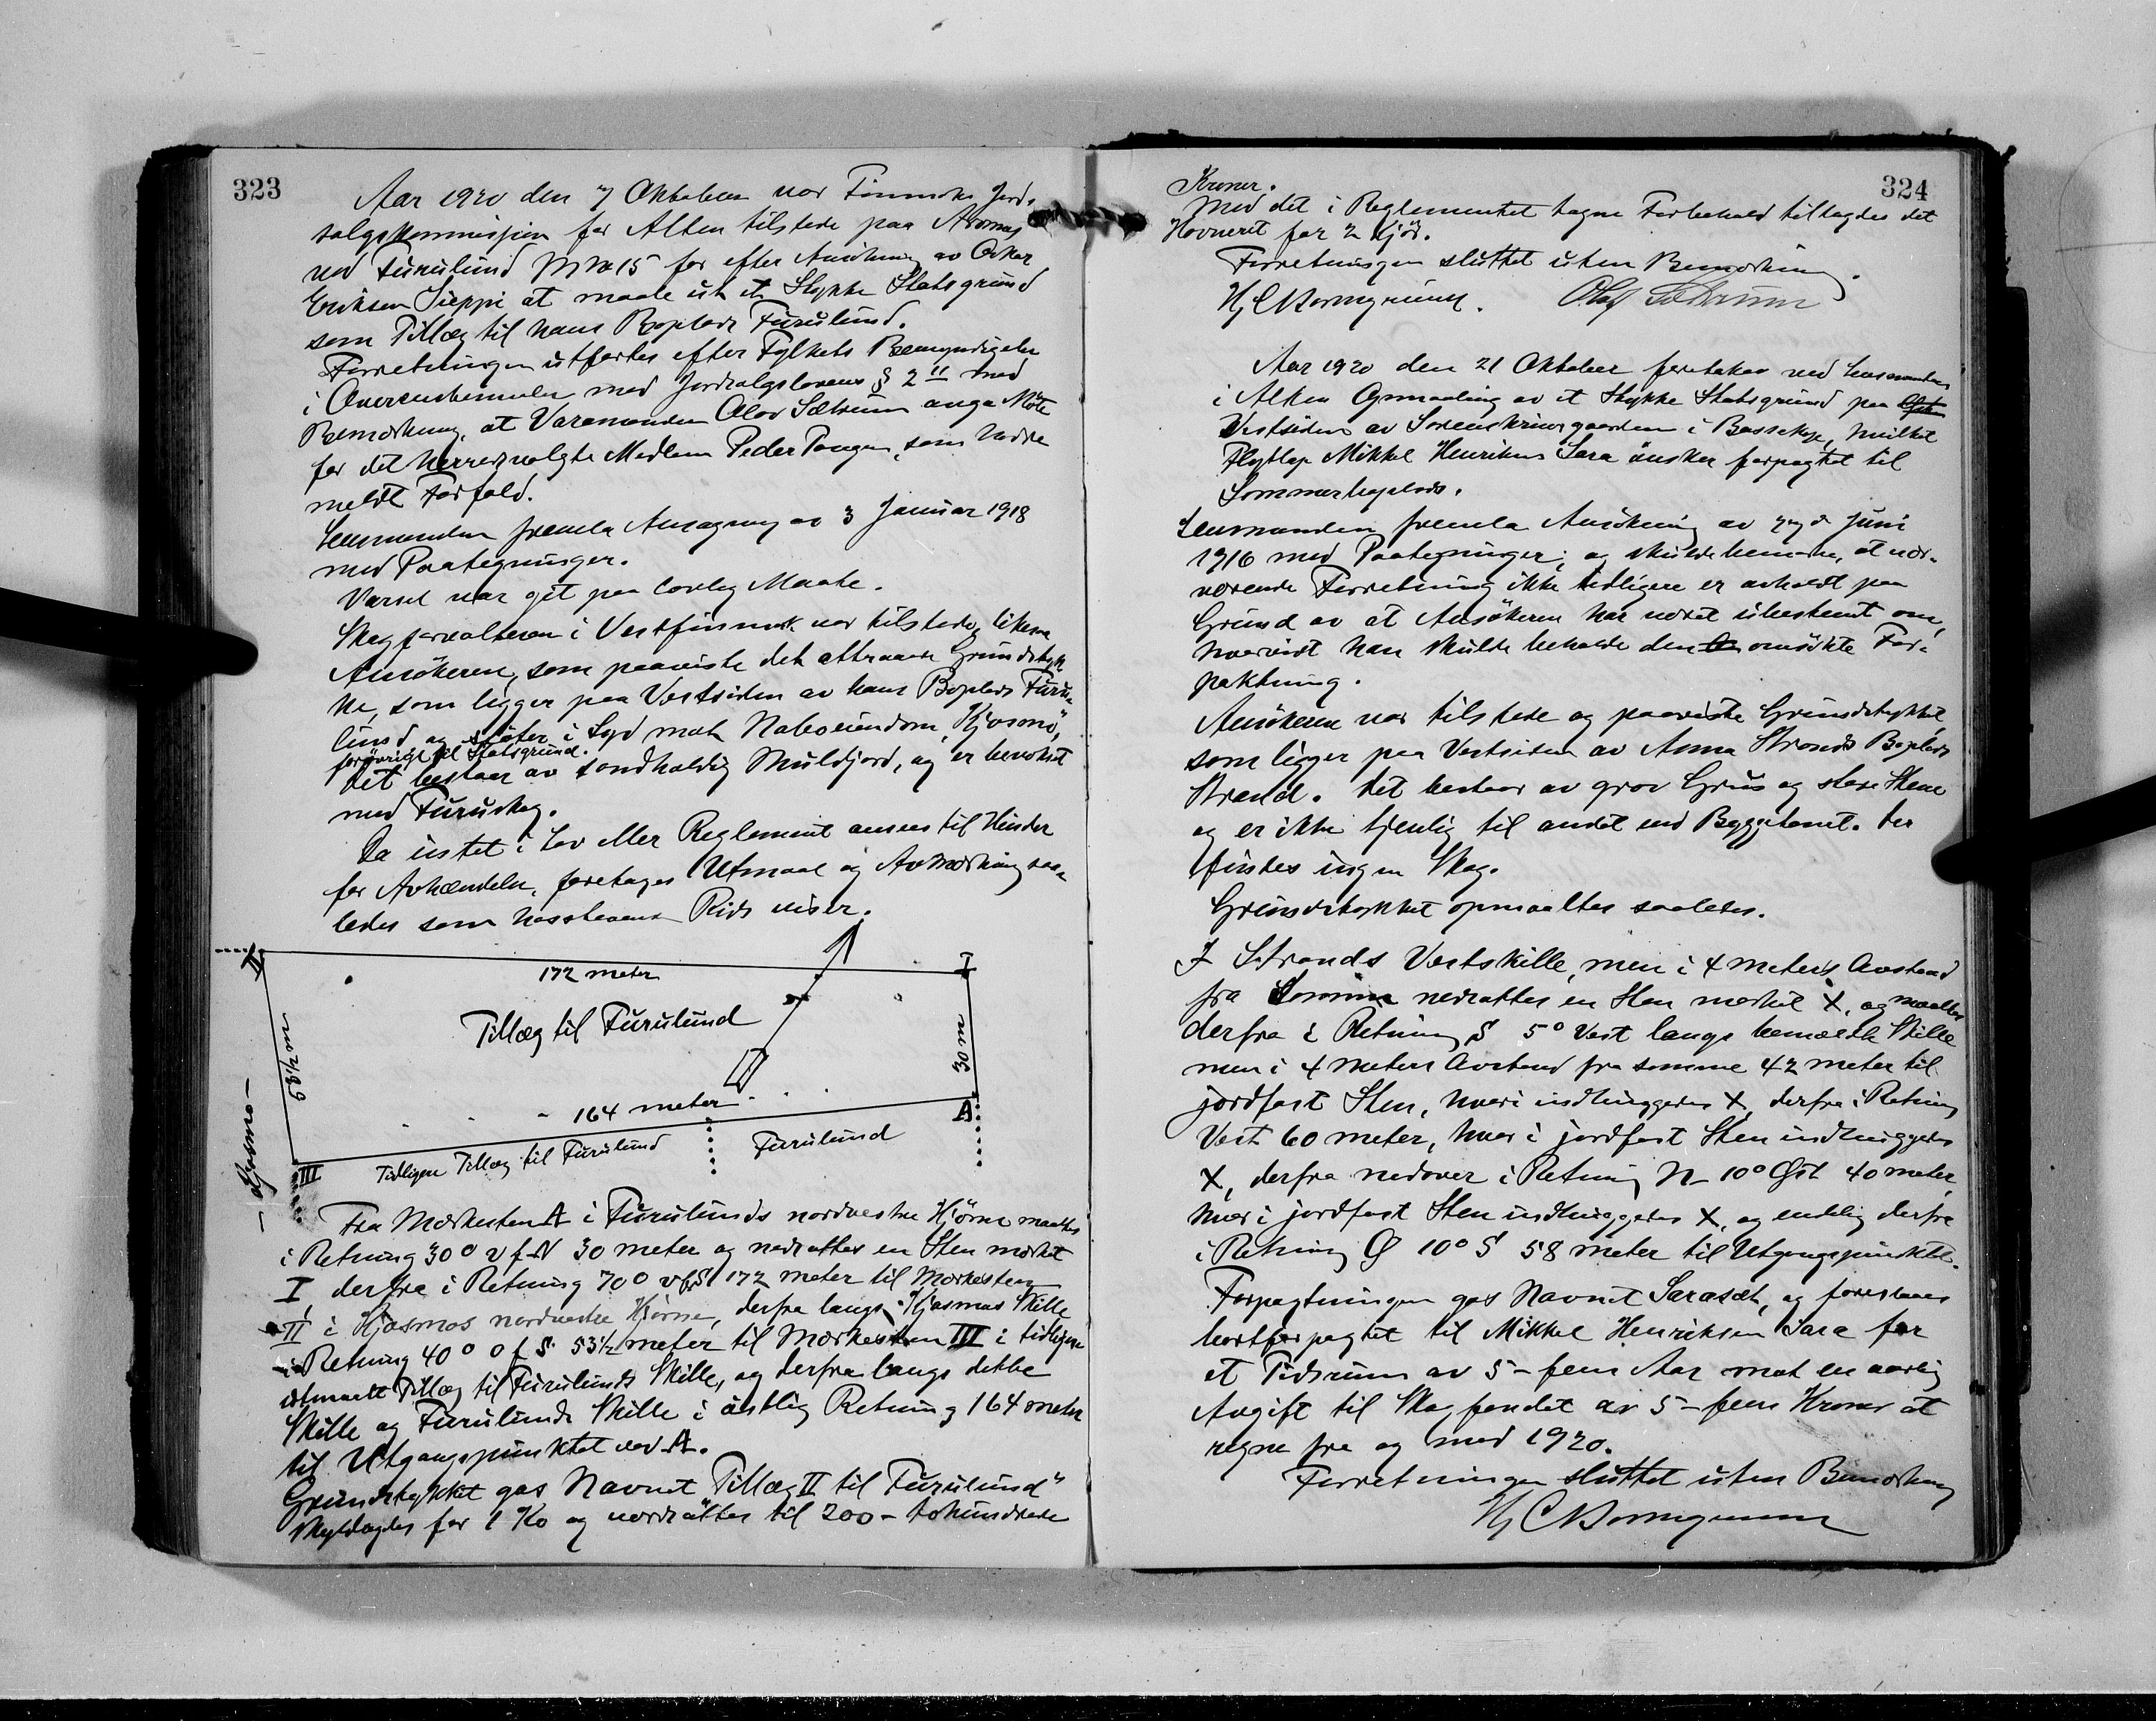 323
Aar 1920 den 7 Oktober var Finmarkens Jord-
salgskommission for Alten tilstede paa Aronnes
ved Furulund M No 15 for efter Ansökning av Oskar
Eriksen Sieppi at maale ut et Stykke Statsgrund
som Tillæg til hans Boplads Furulund.
Forretningen utfortes efter Fylkets Bemyndigelse
i Overensstemmelse med Jordsalgslovens § 2 II med
Bemerkning, at Varamanden Olav Sætrum avga Möte
for det herredsvalgte Medlem Peder Tangen, som hadde
meldt Forfald.
Lensmanden fremla Ansøgning av 3 Januar 1918
med Paategninger.
Varsel var git paa lovlig Maate.
Skogforvalteren i Vestfinmark var tilstede, likesaa
Ansökeren, som paaviste det attraaede Grundstyk-
ke, som ligger paa Vestsiden av hans Boplads Furu-
lund og stöter i Syd mot Naboeiendom, Kjosmo,
forövrigt til Statsgrund.
Det bestaar av sandholdig Muldjord, og er bevokset
med Furuskog.
Da intet i Lov eller Reglement ansees til Hinder
for Avhændelse, foretages Utmaal og Avmerkning saa-
ledes som hosstaaende Rids viser.
II
172 meter
I
Tillæg til Furulund
53½ m
30 m
164 meter
A
- Kjosmo -
III
Tidligere Tillæg til Furulund
Furulund
Fra Merkesten A i Furulunds nordvestre Hjörne maaltes
i Retning 30° v f N 30 meter og nedsattes en Sten merket
I, derfra i Retning 70° v f S 172 meter til Merkesten
II i Kjosmos nordvestre Hjörne, derfra langs Kjosmos Skille
i Retning 40° o f S 53½ meter til Merkesten III i tidligere
utmaalt Tillæg til Furulunds Skille, og derfra langs dette
Skille og Furulunds Skille i östlig Retning 164 meter
til Utgangspunktet ved A.
Grundstykket gas Navnet Tillæg II til Furulund"
Skyldlagdes for 1 Ko og værdsattes til 200 - tohundrede
324
Kroner.
Med det i Reglementet tagne Forbehold tillagdes det
Havneret for 2 Kjör.
Forretningen sluttet uten Bemerkning.
Olaf Sætrum
Aar 1920 den 21 Oktober foretokes ved Lensmanden
i Alten Opmaaling av et Stykke Statsgrund paa
Vestsiden av Sorenskrivergaarden i Bossekop, hvilket
Flytlap Mikkel Henriksen Sara önsker forpagtet til
Sommerboplads.
Lensmanden fremla Ansökning av Juni
1916 med Paategninger; og skulde bemerke, at nær-
værende Forretning ikke tidligere er avholdt paa
Grund av at Ansökeren har været ubestemt om,
hvorvidt han skulde beholde den omsökte For-
paktning.
Ansökeren var tilstede og paaviste Grundstykket
som ligger paa Vestsiden av Anna Strands Boplads
Strand. Det bestaar av grov Grus og store Stene
og er ikke tjenlig til andet end Byggetomt. Der
findes ingen Skog.
Grundstykket opmaaltes saaledes.
I Strands Vestskille, men i 4 meters Avstand
fra samme nedsattes en Sten merket X, og maaltes
derfra i Retning S 5° Vest langs bemeldte Skille
men i 4 meters Avstand fra samme 42 meter til
jordfast Sten, hvori indhuggedes X, derfra i Retning
Vest 60 meter, hvor i jordfast Sten indhuggedes
X, derfra nedover i Retning N 10° Øst 40 meter,
hvor i jordfast Sten indhuggedes X, og endelig derfra
i Retning Ø 10° S 58 meter til Utgangspunktet.
Forpagtningen gas Navnet Sarasæt, og foreslaaes
bortforpagtet til Mikkel Henriksen Sara for
et Tidsrum av 5 - fem Aar mot en aarlig
Avgift til Skogfondet av 5 - fem Kroner at
regne fra og med 1920.
Forretningen sluttet uten Bemerkning